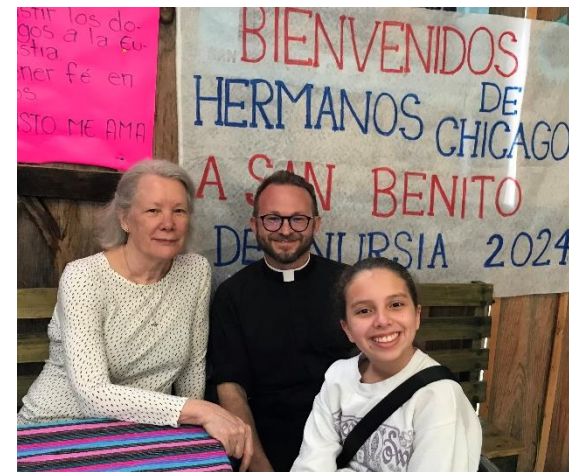 stir los do-
gos a la Eu-
stia.
ner fé en
s.
STO ME AMA
BIENVENIDOS
HERMANOS DE
CHICAGO
A SAN BENITO
DE NURSIA 2024